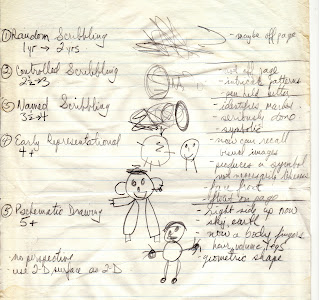 ① Random Scribbling
1yr → 2yrs.
- maybe off page
② Controlled Scribbling
2½→3
- not off page
- intricate patterns
- pen held better
③ Named Scribbling
3½→4
- identifies
- seriously done
- symbolic
④ Early Representational
4+
- now can recall
visual images
- produces a symbol
not
- float on page
- right side up now
⑤ Preschematic Drawing
5+
- now a body, fingers
hair, volume, legs
- geometric shape
- no perspective
- use 2-D surface as 2-D